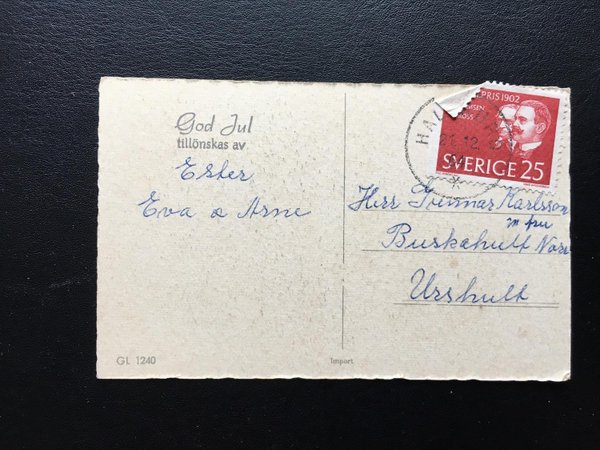 God Jul
tillönskas av
Ester
Eva & Arne
GL 1240
Import
PRIS 1902
SVERIGE 25
HAL
21.12.
Herr Gunnar Karlsson
m fru
Buskahult Norr
Urshult